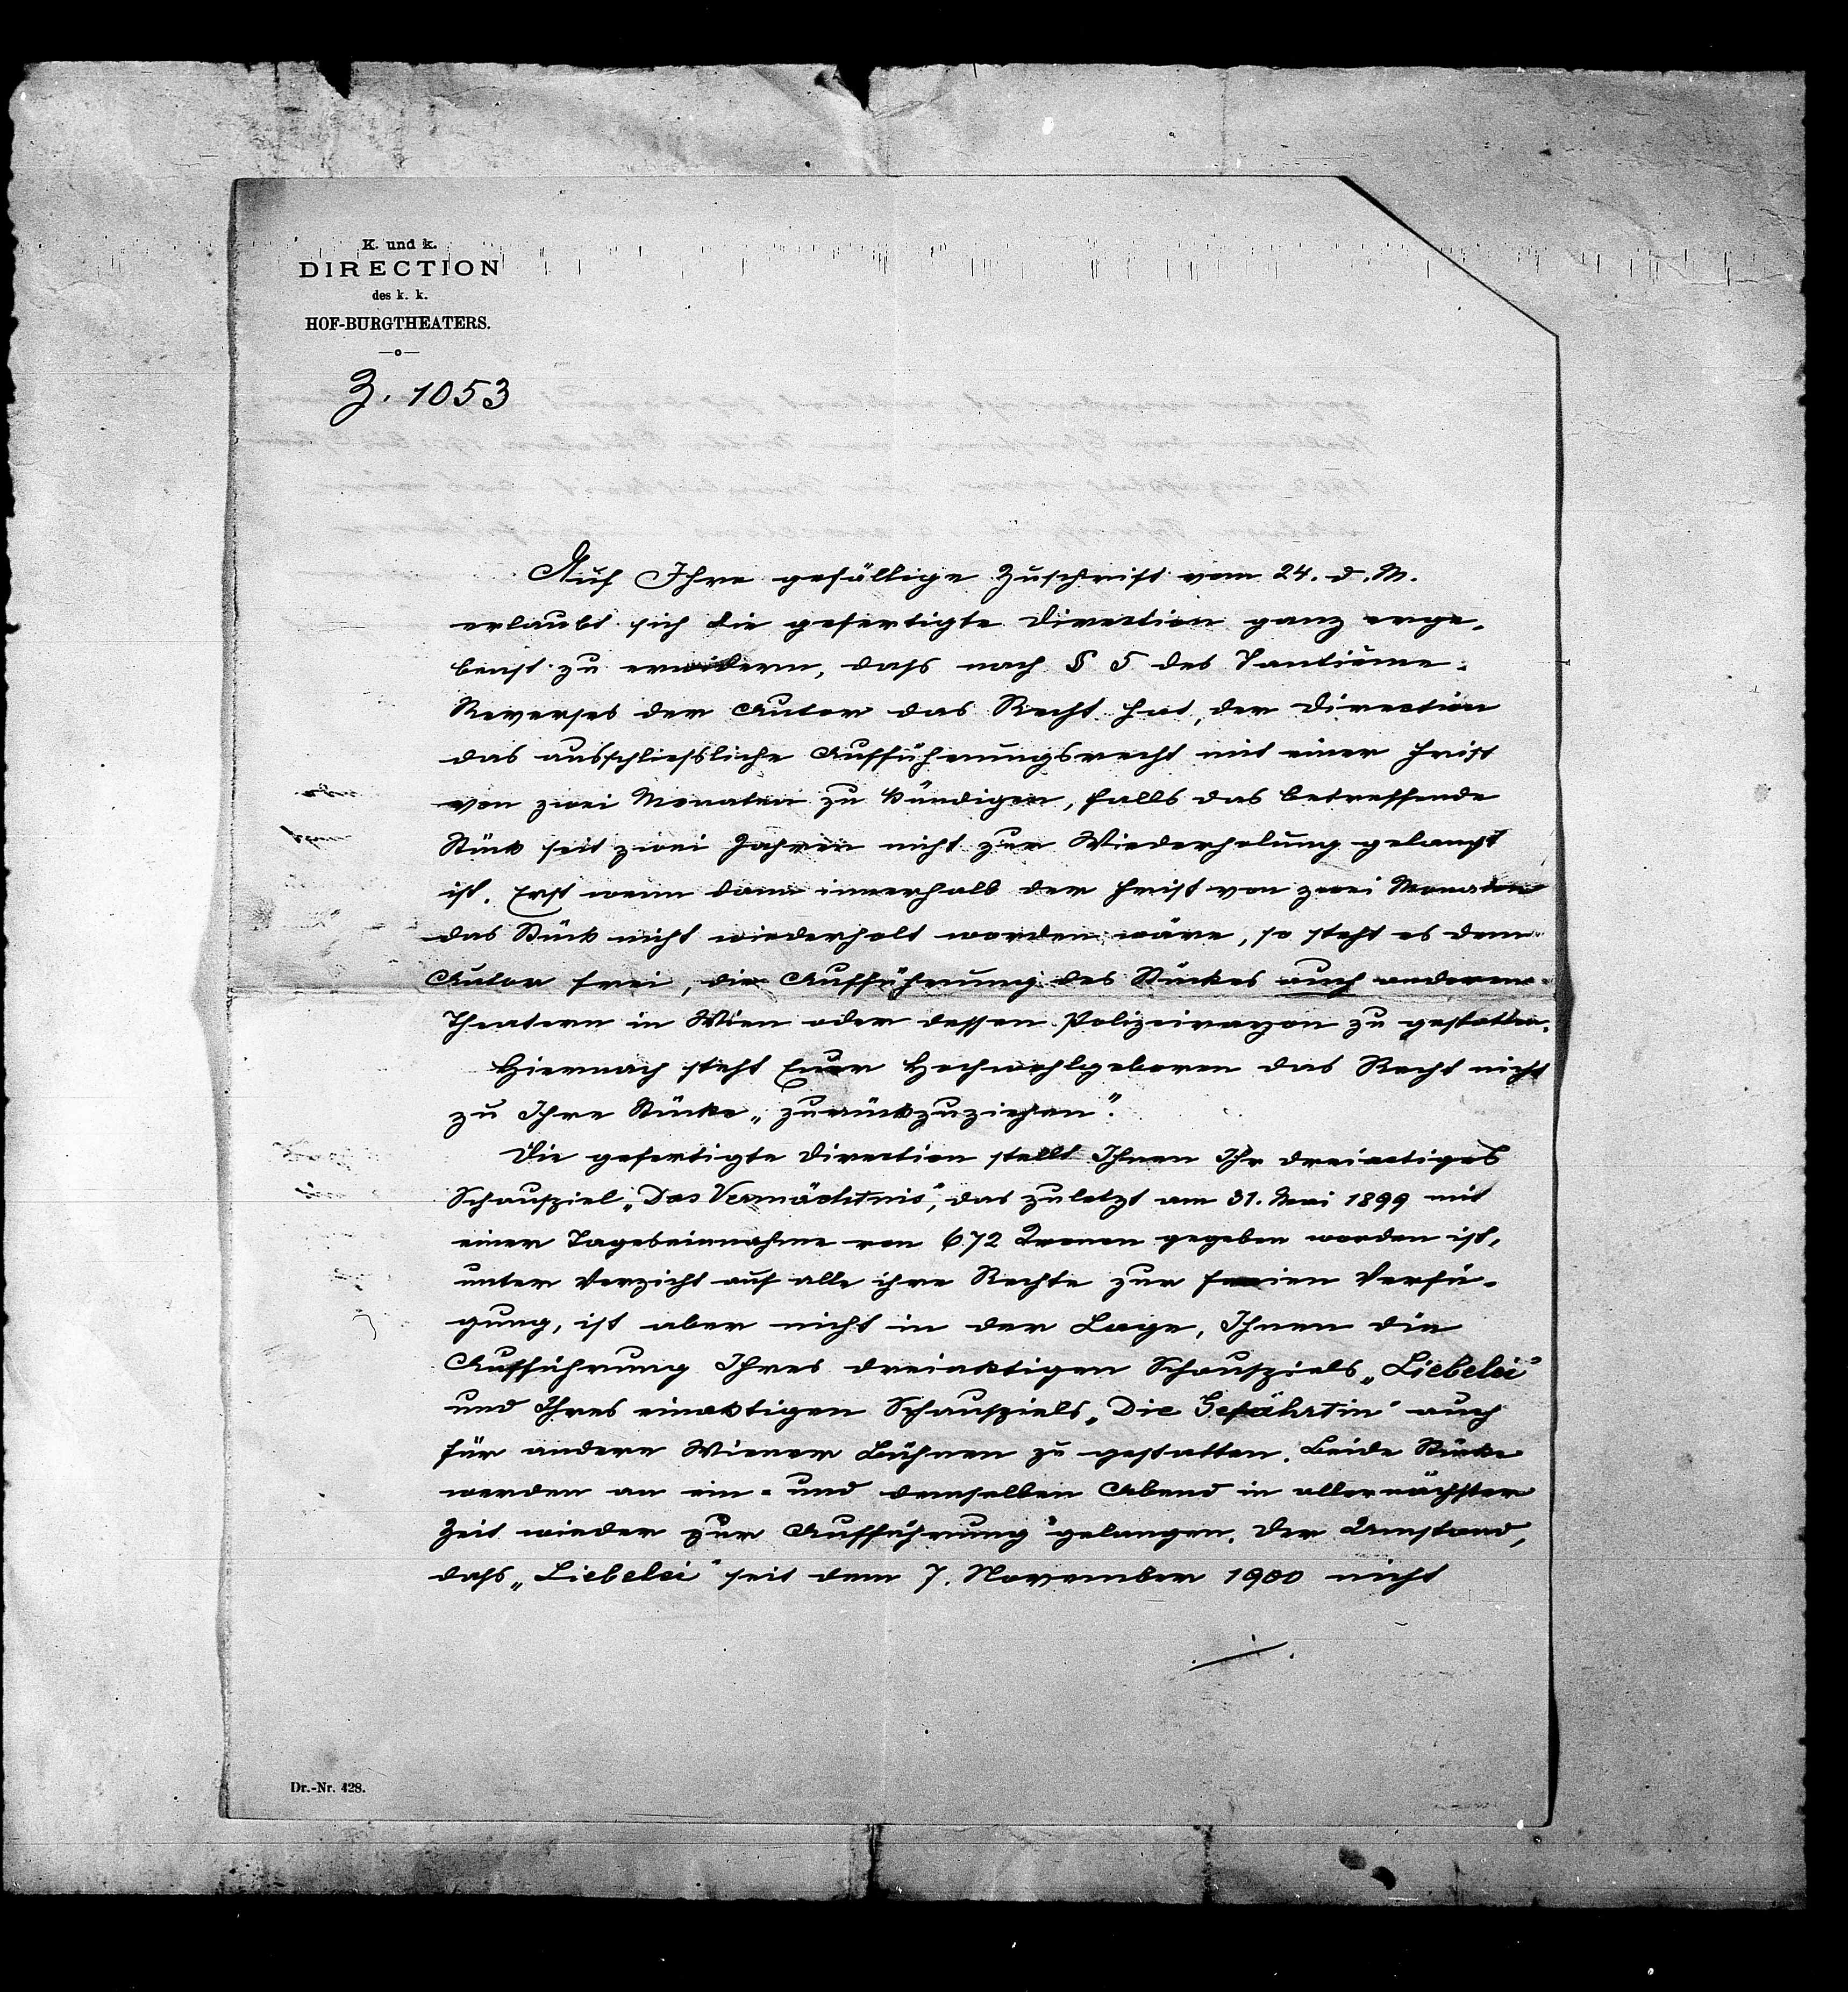 K. und k.
DIRECTION
des k. k.
HOF-BURGTHEATERS.
Z. 1053
Auf Ihre gefällige Zuschrift vom 24. d. M.
erlaubt sich die gefertigte Direction ganz erge-
benst zu erwidern, dass nach § 5 des Tantième-
Reverses der Autor das Recht hat, der Direction
das ausschliessliche Aufführungsrecht mit einer Frist
von zwei Monaten zu kündigen, falls das betreffende
Stück seit zwei Jahren nicht zur Wiederholung gelangt
ist. Erst wenn dann innerhalb der Frist von zwei Monaten
das Stück nicht wiederholt worden wäre, so steht es dem
Autor frei, die Aufführung des Stückes auch anderen
Theatern in Wien oder dessen Polizeirayon zu gestatten.
Hiernach steht Euer Hochwohlgeboren das Recht nicht
zu Ihre Stücke „zurückzuziehen“.
Die gefertigte Direction stellt Ihnen Ihr dreiactiges
Schauspiel „Das Vermächtnis“, das zuletzt am 31. Mai 1899 mit
einer Tageseinnahme von 672 Kronen gegeben worden ist,
unter Verzicht auf alle ihre Rechte zur freien Verfü-
gung, ist aber nicht in der Lage, Ihnen die
Aufführung Ihres dreiaktigen Schauspiels „Liebelei“
und Ihres einaktigen Schauspiels „Die Gefährtin“ auch
für andere Wiener Bühnen zu gestatten. Beide Stücke
werden an ein- und demselben Abend in allernächster
Zeit wieder zur Aufführung gelangen. Der Umstand,
dass „Liebelei“ seit dem 7. November 1900 nicht
./.
Dr.-Nr. 428.